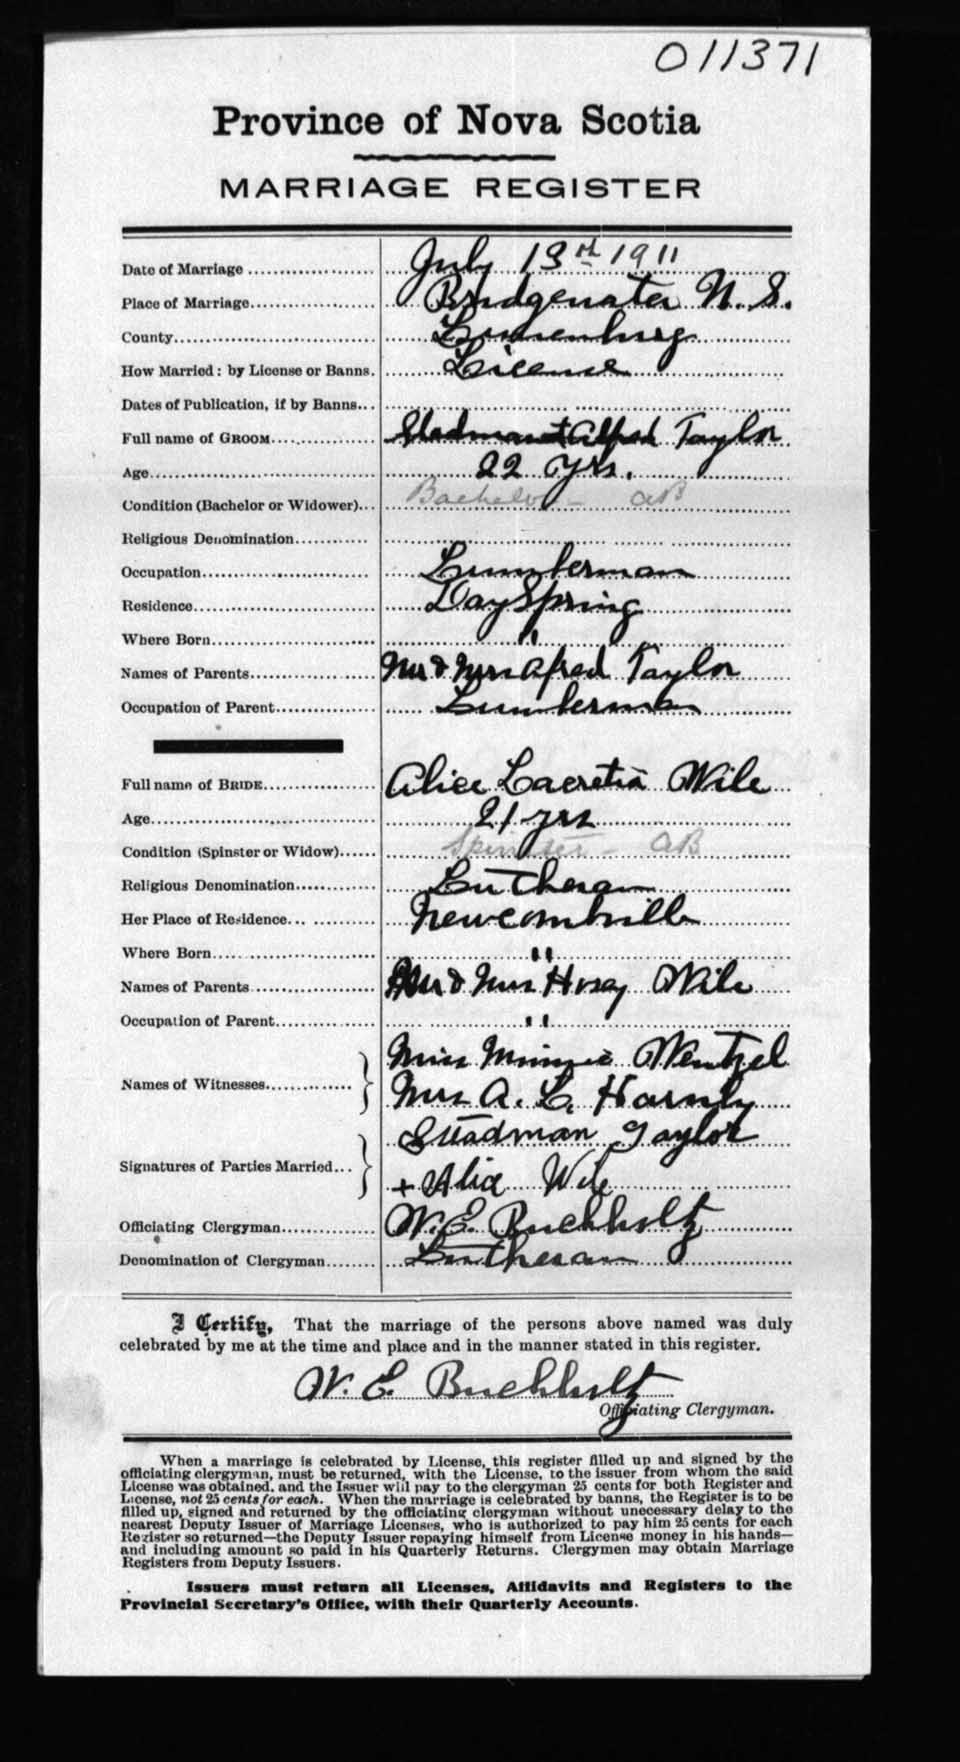 011371
Province of Nova Scotia
MARRIAGE REGISTER
Date of Marriage July 13th 1911
Place of Marriage Bridgewater N. S.
County Lunenburg
How Married: by License or Banns. License
Dates of Publication, if by Banns
Full name of GROOM Alfred Taylor
Age 22 yrs.
Condition (Bachelor or Widower) Bachelor - aB
Religious Denomination
Occupation Lumberman
Residence DaySpring
Where Born "
Names of Parents Mr & Mrs Afred Taylor
Occupation of Parent Lumberman
Full name of BRIDE Alice Lacretia Wile
Age 21 yrs
Condition (Spinster or Widow) Spinster - aB
Religious Denomination Lutheran
Her Place of Residence Newcombville
Where Born "
Names of Parents Mr & Mrs Wile
Occupation of Parent "
Miss Minnie Wentzel
Names of Witnesses
Mrs A. L.
Taylor
Signatures of Parties Married
+ Wile
Officiating Clergyman W. E. Buchholtz
Denomination of Clergyman Lutheran
I Certify, That the marriage of the persons above named was duly
celebrated by me at the time and place and in the manner stated in this register.
W. E. Buchholtz
Officiating Clergyman.
When a marriage is celebrated by License, this register filled up and signed by the
officiating clergyman, must be returned, with the License, to the issuer from whom the said
License was obtained, and the Issuer will pay to the clergyman 25 cents for both Register and
License, not 25 cents for each. When the marriage is celebrated by banns, the Register is to be
filled up, signed and returned by the officiating clergyman without unecessary delay to the
nearest Deputy Issuer of Marriage Licenses, who is authorized to pay him 25 cents for each
Register so returned—the Deputy Issuer repaying himself from License money in his hands—
and including amount so paid in his Quarterly Returns. Clergymen may obtain Marriage
Registers from Deputy Issuers.
Issuers must return all Licenses, Affidavits and Registers to the
Provincial Secretary's Office, with their Quarterly Accounts.